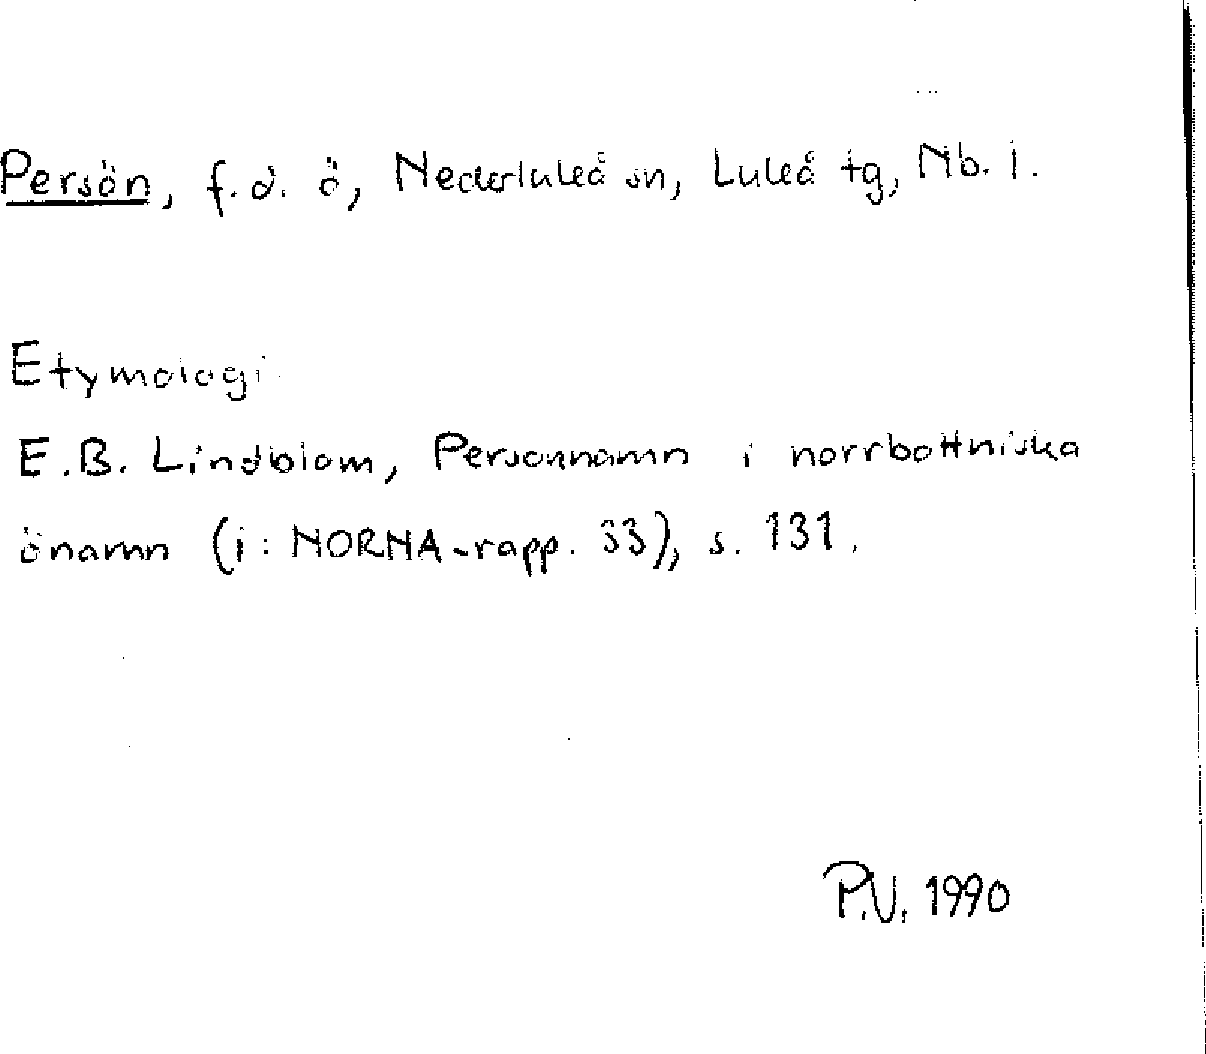 Persön, f.d. ö, Nederluleå sn, Luleå tg, Nb. l.
Etymologi
E.B. Lindblom, Personnamn i norrbottniska
önamn (i: NORNA-rapp. 33), s. 131.
P.V. 1990